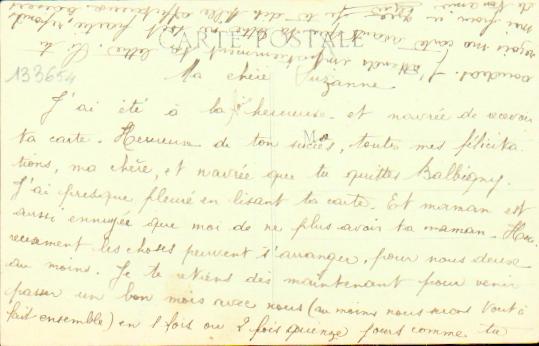 CARTE POSTALE
133654
Ma chère Suzanne
J'ai été à la fois heureuse et navrée de recevoir
ta carte. Heureuse de ton succès, toutes mes félicita
tions, ma chère, et navrée que tu quittes Balbigny.
J'ai presque pleuré en lisant ta carte. Et maman est
aussi ennuyée que moi de ne plus avoir ta maman. Heu
reusement les choses peuvent s'arranger, pour nous deux
au moins. Je te retiens dès maintenant pour venir
passer un bon mois avec nous (au moins nous serons tout à
fait ensemble) en 1 fois ou 2 fois quinze jours comme tu
voudras. J'attends impatiemment ta lettre. Si tu
reçois ma carte avant